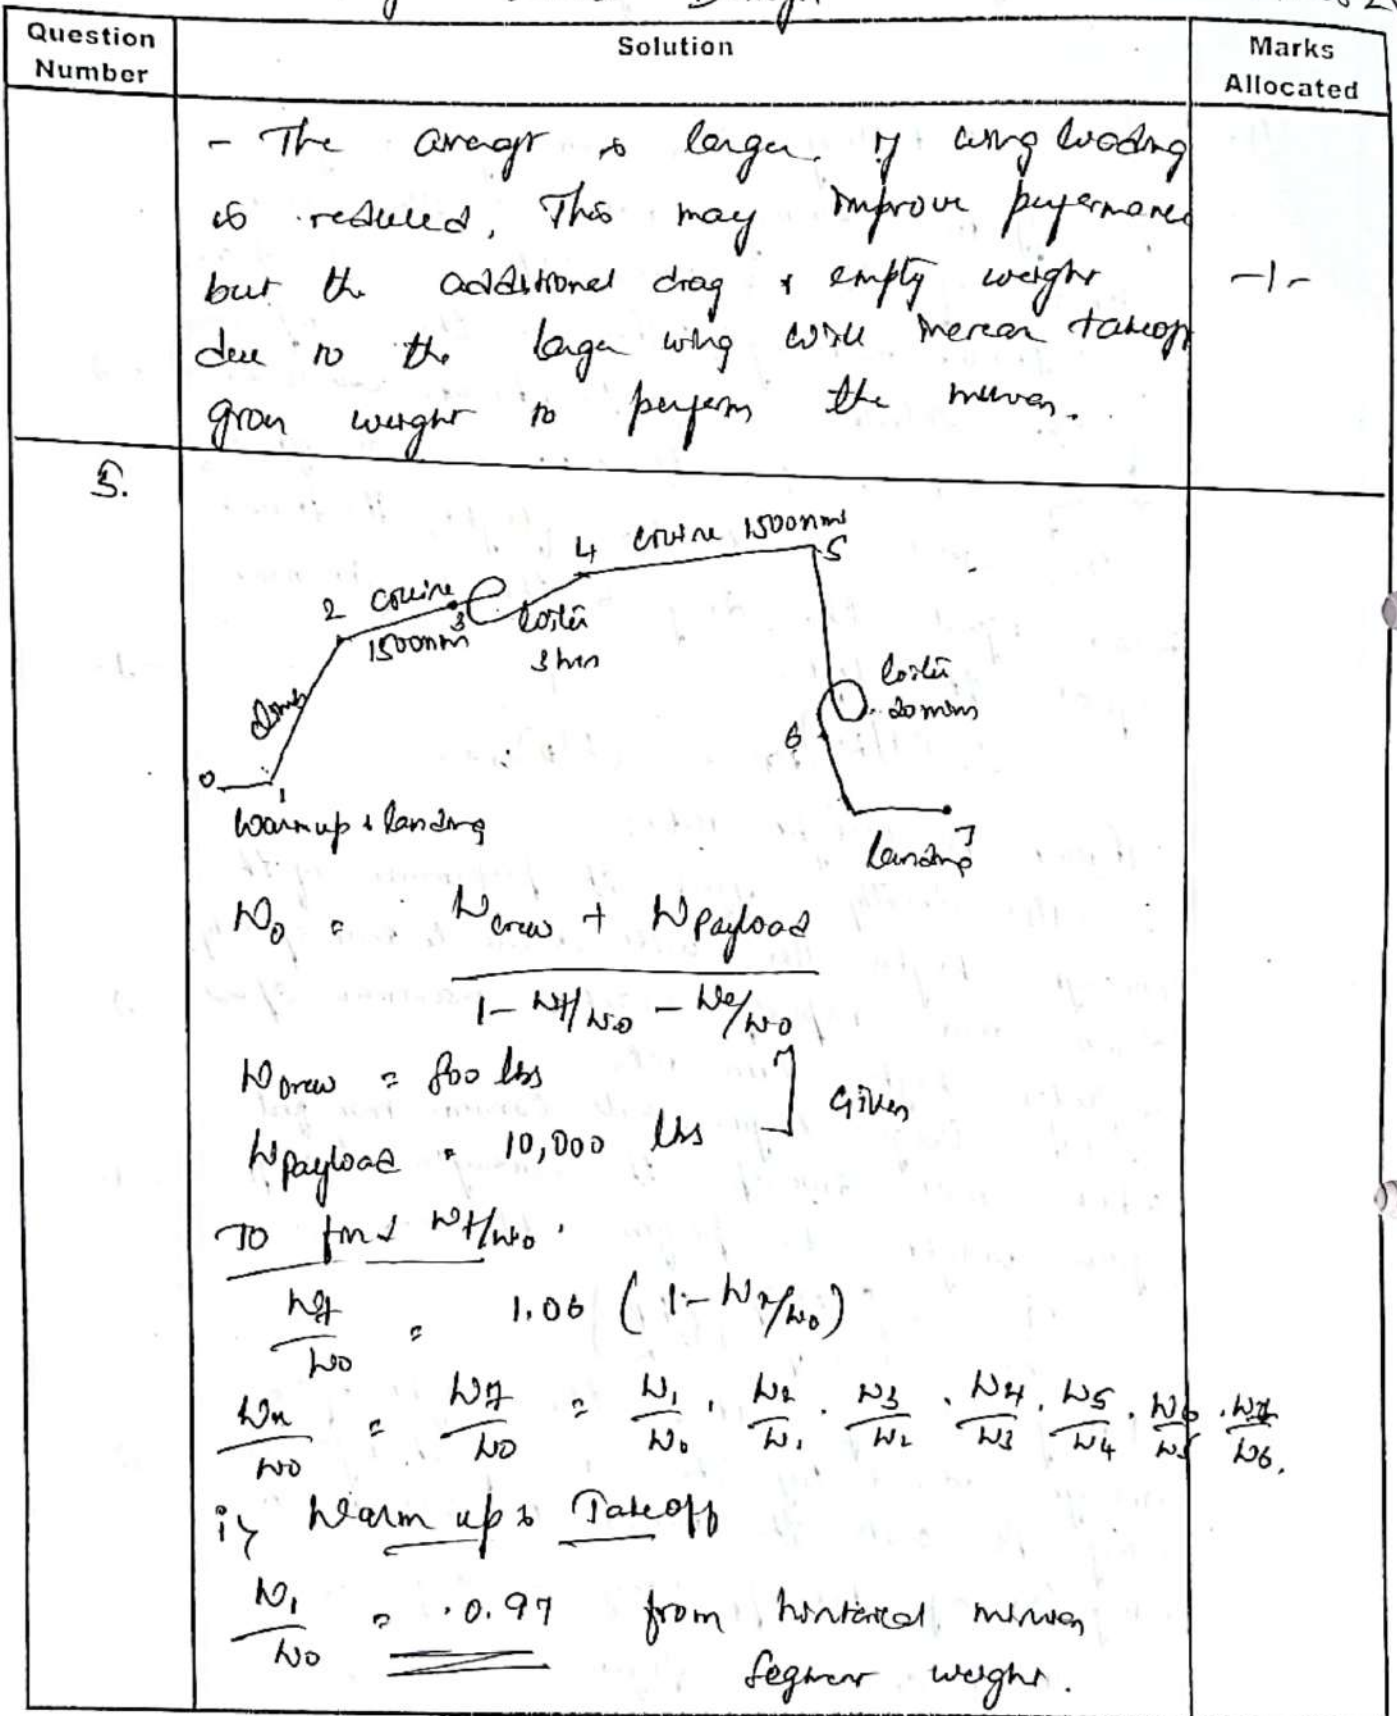 Design
Question Number
Solution
Marks Allocated
- The aircraft is larger if wing loading
is reduced. This may improve performance
but the additional drag & empty weight
due to the larger wing will increase takeoff
gross weight to perform the mission.
-1-
5.
4 cruise 1500nms 5
2 cruise 3
1500nm
loiter
3 hrs
climb
loiter
20 mins
6
0
1
Warm up & landing
7
landing
W0 = Wcrew + Wpayload
1 - Wf/W0 - We/W0
Wcrew = 800 lbs
Wpayload = 10,000 lbs
Given
To find Wf/W0.
Wf/W0 = 1.06 (1 - W7/W0)
Wn/W0 = W7/W0 = W1/W0 . W2/W1 . W3/W2 . W4/W3 . W5/W4 . W6/W5 . W7/W6.
i) Warm up & Takeoff
W1/W0 = 0.97 from historical mission
segment weight.